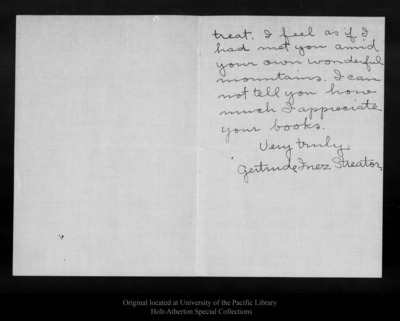 treat. I feel as if I
had met you amid
your own wonderful
mountains. I can
not tell you how
much I appreciate
your books.
Very truly,
Gertrude Inez Streator
Original located at University of the Pacific Library
Holt-Atherton Special Collections